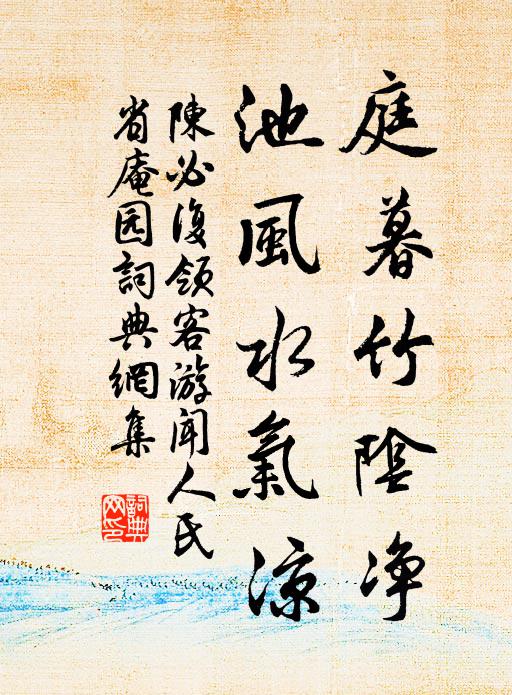 庭暮竹陰净
池風水氣涼
陳必復領客游闻人民
省庵园詞典網集
詞典網印